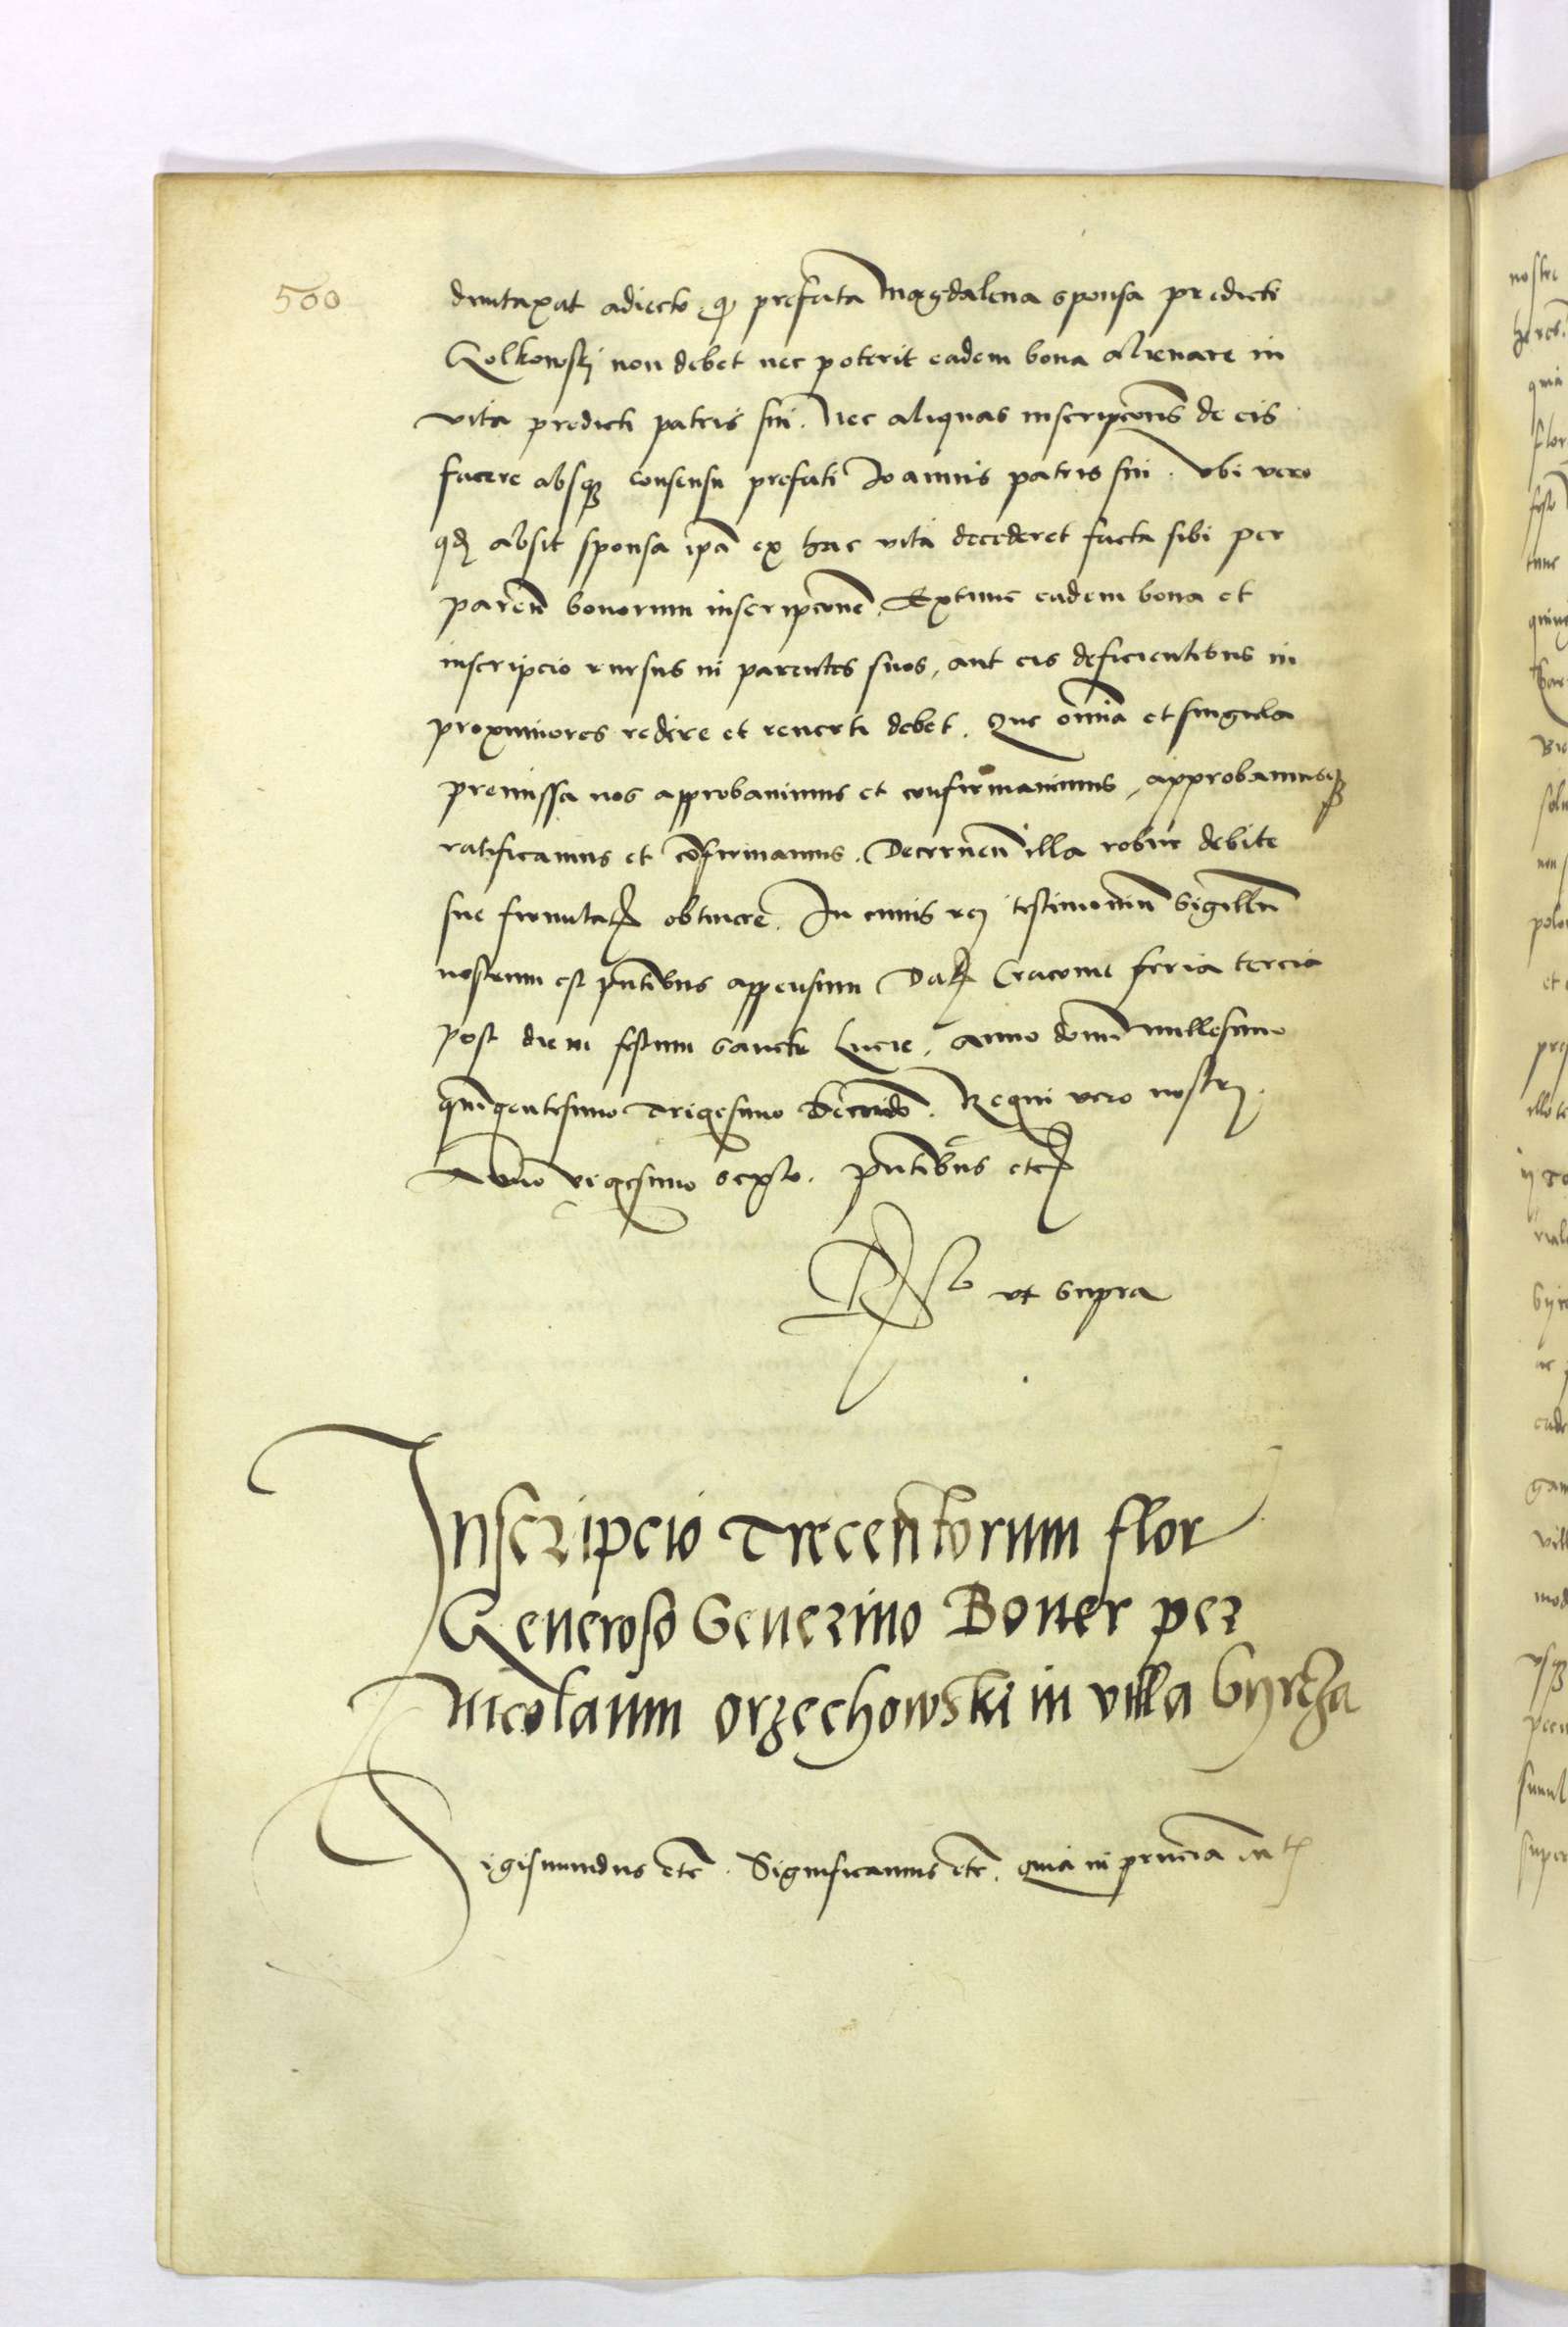 500
dumtaxat adiecto, qd prefata Magdalena sponsa predicti
Golkowskj non debet nec poterit eadem bona alienare in
vita predicti patris sui. Nec aliquas inscripcoens de eis
facere absqz consensu prefati Joannis patris sui. Vbi vero
qd absit sponsa ipa ex hac vita decederet facta sibi per
paren bonorum inscripcone. Extunc eadem bona et
inscripcio rursus in parentes suos, aut eis deficientibus in
proximiores redire et reuerti debet. Que omia et singula
premissa nos approbauimus et confirmauimus, approbamusqz
ratificamus et cofirmamus. Decernen illa robur debite
sue firmitat obtinere. In cuius rej testimoniu sigillu
nostrum est pntibus appensum Dat Cracouie feria tercia
post diem festum sancte Lucie, anno domi millesimo
quingentesimo trigesimo secundo. Regni vero nostrj
Anno vigesimo sexto. pntibus etc
ut supra
Inscripcio Trecentorum flor
Generoso Seuerino Boner per
Nicolaum Orzechowski in villa
Sigismundus etc. Significamus etc. quia in pruncia